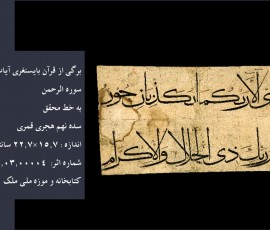 برگی از قرآن بایسنغری آیات
سوره الرحمن
به خط محقق
سده نهم هجری قمری
اندازه : ۱۵٫۷×۲۲٫۷ سانت
شماره اثر: ۰۳٫۰۰۰۰۴
کتابخانه و موزه ملی ملک
ی الا ربکما تکذبان
ربك ذی الجلال والاکرام